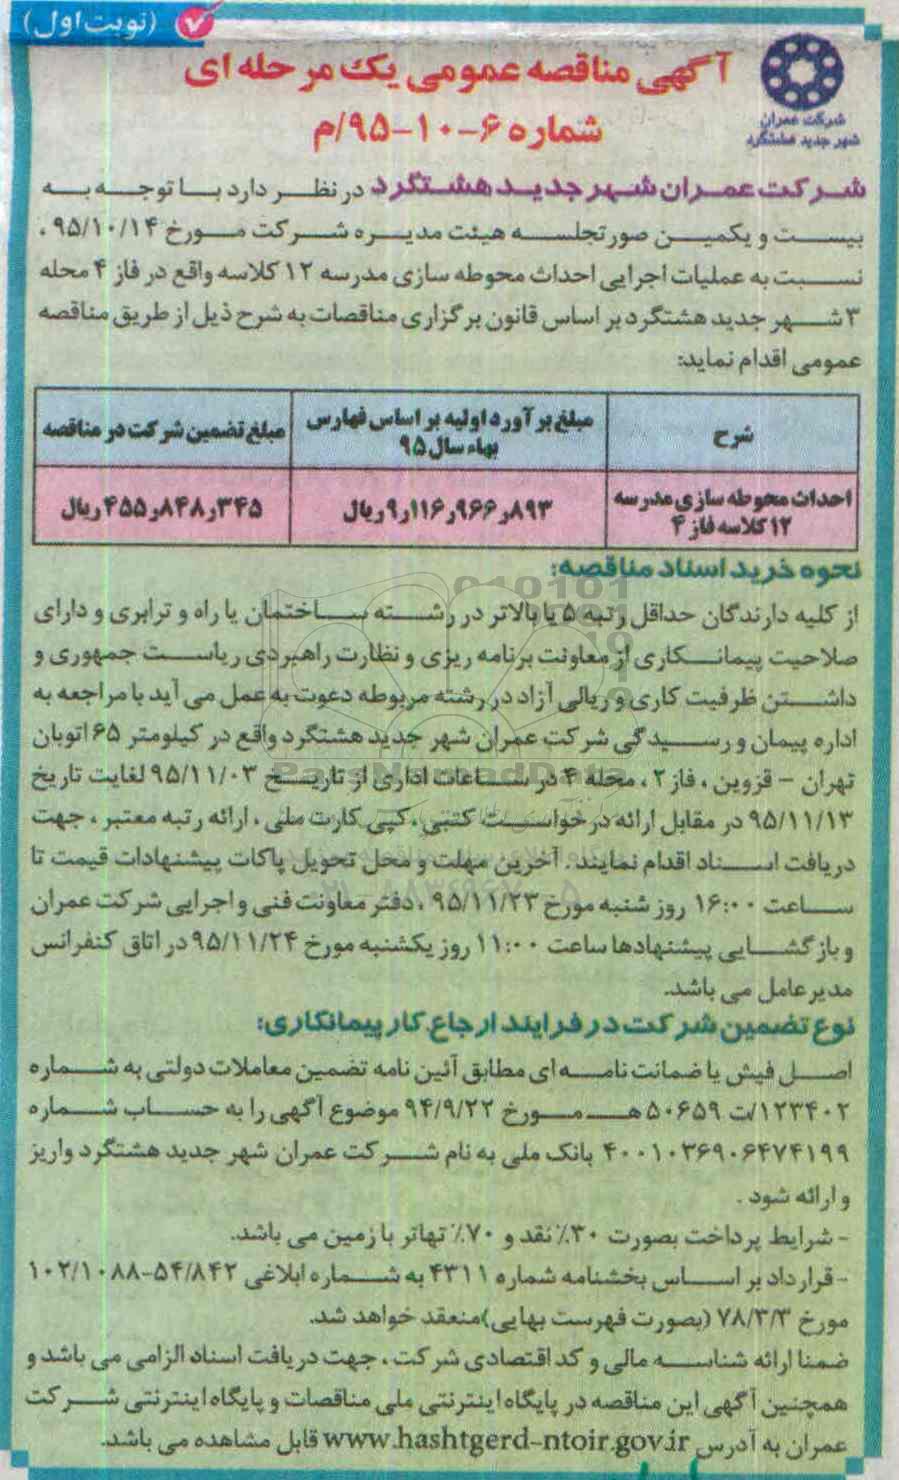 (نوبت اول)
آگهی مناقصه عمومی یک مرحله ای
شرکت عمران
شهر جدید هشتگرد
شماره ۶-۱۰-۹۵/م
شرکت عمران شهر جدید هشتگرد در نظر دارد با توجه به
بیست و یکمین صورتجلسه هیئت مدیره شرکت مورخ ۹۵/۱۰/۱۴ ،
نسبت به عملیات اجرایی احداث محوطه سازی مدرسه ۱۲ کلاسه واقع در فاز ۴ محله
۳ شهر جدید هشتگرد بر اساس قانون برگزاری مناقصات به شرح ذیل از طریق مناقصه
عمومی اقدام نماید:
شرح
مبلغ برآورد اولیه بر اساس فهارس
بهاء سال ۹۵
مبلغ تضمین شرکت در مناقصه
احداث محوطه سازی مدرسه
۱۲ کلاسه فاز ۴
۹ر۱۱۶ر۹۶۶ر۸۹۳ ریال
۴۵۵ر۸۴۸ر۳۴۵ ریال
نحوه خرید اسناد مناقصه:
از کلیه دارندگان حداقل رتبه ۵ یا بالاتر در رشته ساختمان یا راه و ترابری و دارای
صلاحیت پیمانکاری از معاونت برنامه ریزی و نظارت راهبردی ریاست جمهوری و
داشتن ظرفیت کاری و ریالی آزاد در رشته مربوطه دعوت به عمل می آید با مراجعه به
اداره پیمان و رسیدگی شرکت عمران شهر جدید هشتگرد واقع در کیلومتر ۶۵ اتوبان
تهران - قزوین ، فاز ۲ ، محله ۴ در ساعات اداری از تاریخ ۹۵/۱۱/۰۳ لغایت تاریخ
۹۵/۱۱/۱۳ در مقابل ارائه درخواست کتبی ، کپی کارت ملی ، ارائه رتبه معتبر ، جهت
دریافت اسناد اقدام نمایند . آخرین مهلت و محل تحویل پاکات پیشنهادات قیمت تا
ساعت ۱۶:۰۰ روز شنبه مورخ ۹۵/۱۱/۲۳ ، دفتر معاونت فنی و اجرایی شرکت عمران
و بازگشایی پیشنهادها ساعت ۱۱:۰۰ روز یکشنبه مورخ ۹۵/۱۱/۲۴ در اتاق کنفرانس
مدیر عامل می باشد.
نوع تضمین شرکت در فرایند ارجاع کار پیمانکاری:
اصل فیش یا ضمانت نامه ای مطابق آئین نامه تضمین معاملات دولتی به شماره
۱۲۳۴۰۲/ت ۵۰۶۵۹ هـ مورخ ۹۴/۹/۲۲ موضوع آگهی را به حساب شماره
۴۰۰۱۰۳۶۹۰۶۴۷۴۱۹۹ بانک ملی به نام شرکت عمران شهر جدید هشتگرد واریز
و ارائه شود .
- شرایط پرداخت بصورت ۳۰٪ نقد و ۷۰٪ تهاتر با زمین می باشد.
- قرارداد بر اساس بخشنامه شماره ۴۳۱۱ به شماره ابلاغی ۵۴/۸۴۲-۱۰۲/۱۰۸۸
مورخ ۷۸/۳/۳ (بصورت فهرست بهایی) منعقد خواهد شد.
ضمنا ارائه شناسه مالی و کد اقتصادی شرکت ، جهت دریافت اسناد الزامی می باشد و
همچنین آگهی این مناقصه در پایگاه اینترنتی ملی مناقصات و پایگاه اینترنتی شرکت
عمران به آدرس www.hashtgerd-ntoir.gov.ir قابل مشاهده می باشد.